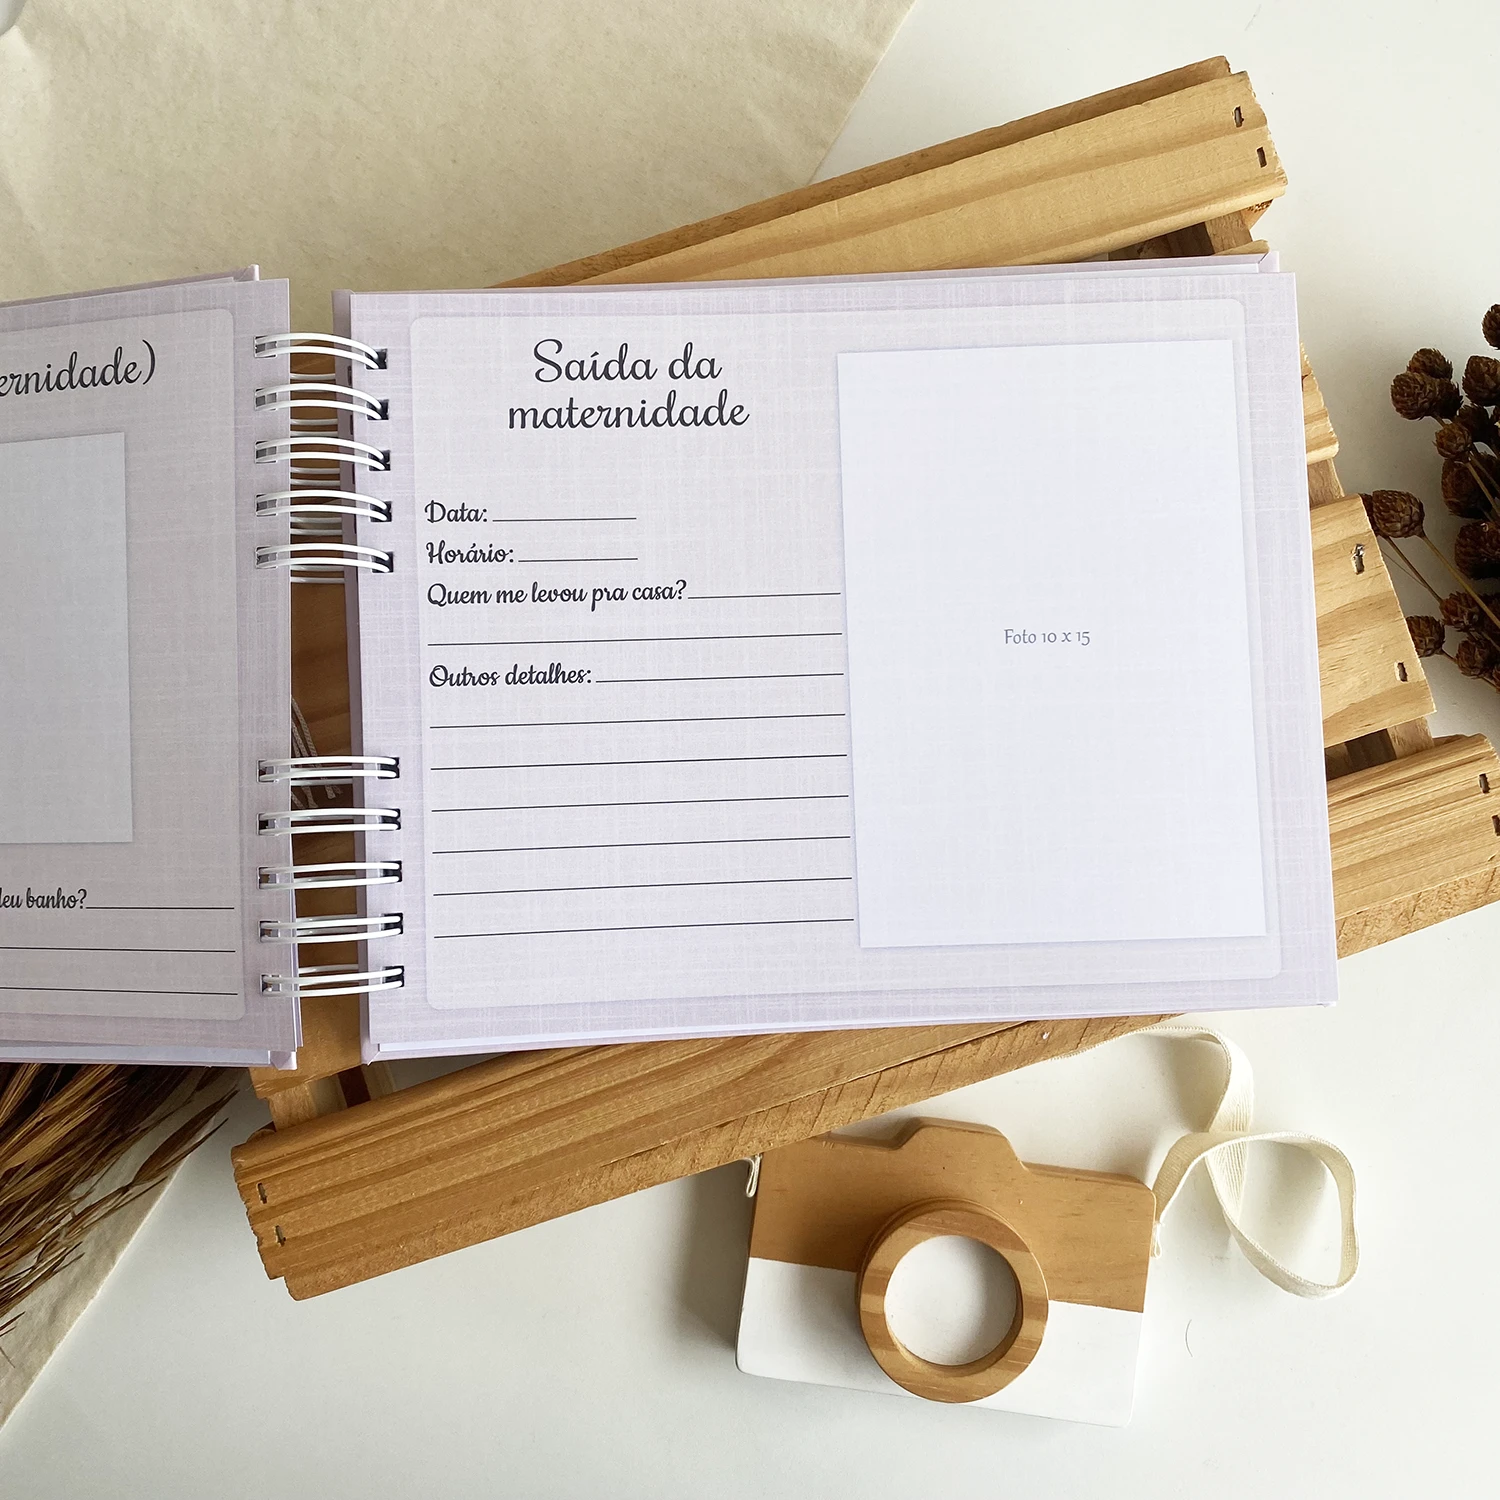 ernidade)
deu banho?
Saída da
maternidade
Data:
Horário:
Quem me levou pra casa?
Outros detalhes:
Foto 10 x 15